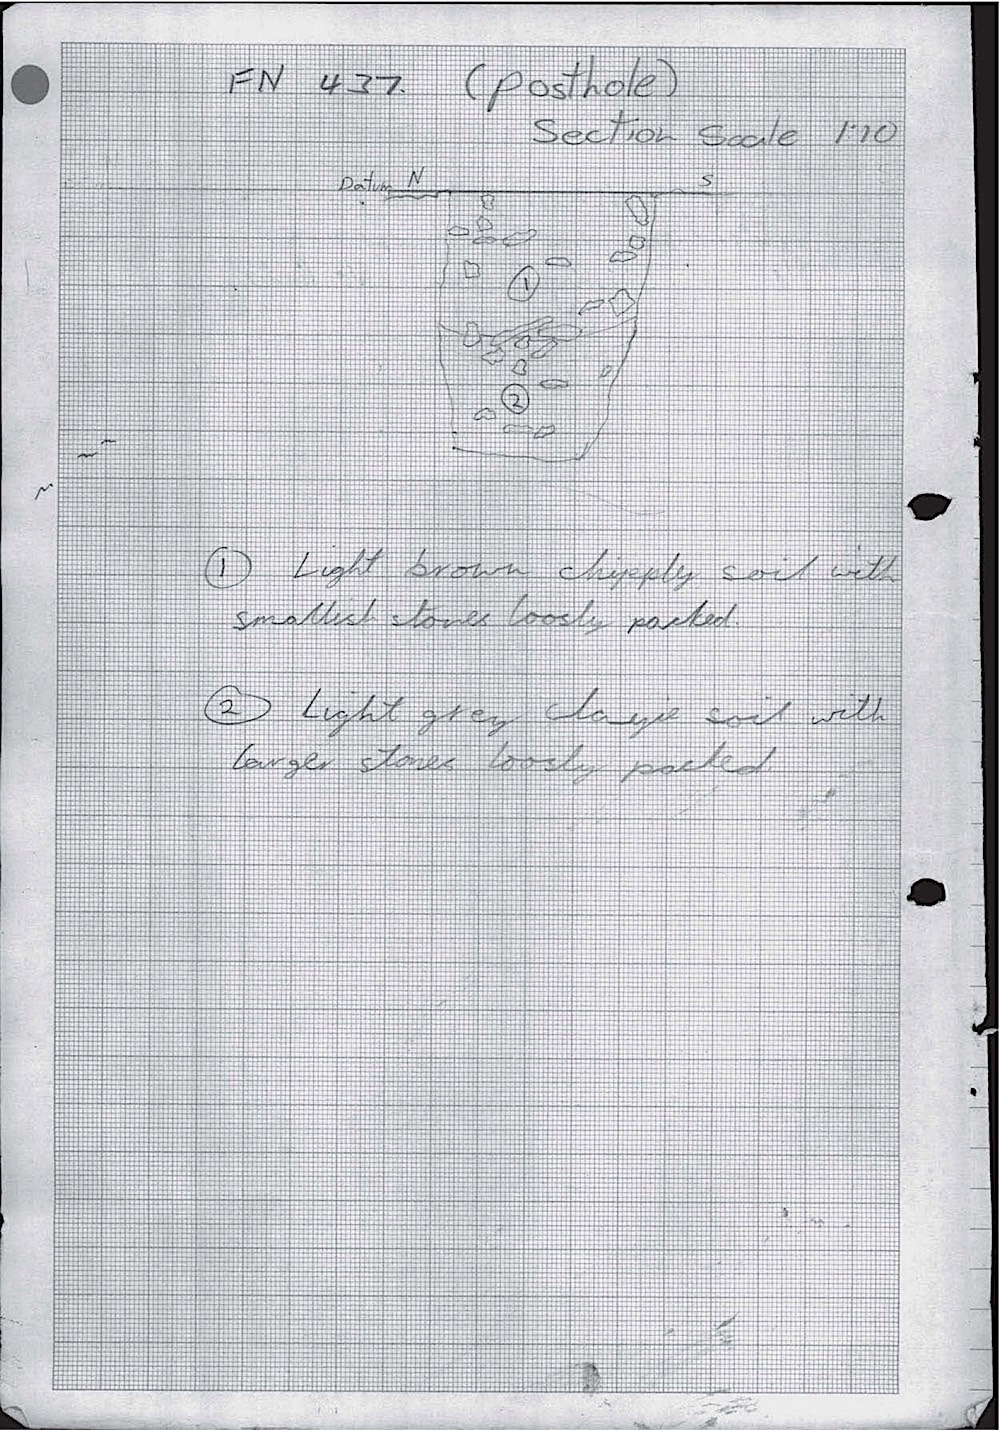 FN 437. (posthole)
Section Scale 1:10
Datum N S
1
2
1 Light brown chipply soil with
smallish stones loosly packed.
2 Light grey clayie soil with
larger stones loosly packed